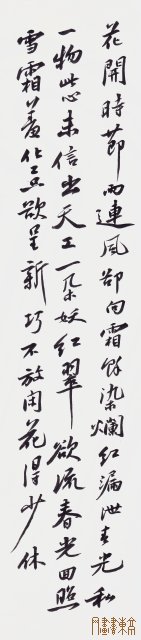 花開時節雨連風卻向霜餘染爛紅漏泄春光私
一物此心未信出天工一朵妖紅翠欲流春光回照
雪霜羞化工只欲呈新巧不放閑花得少休